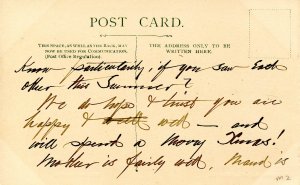 POST CARD.
THIS SPACE, AS WELL AS THE BACK, MAY
NOW BE USED FOR COMMUNICATION.
(Post Office Regulation).
THE ADDRESS ONLY TO BE
WRITTEN HERE.
Know particularly, if you saw Each
other this Summer?
We do hope & trust you are
happy & well — and
will spend a Merry Xmas!
Mother is fairly well. Maud is
M2